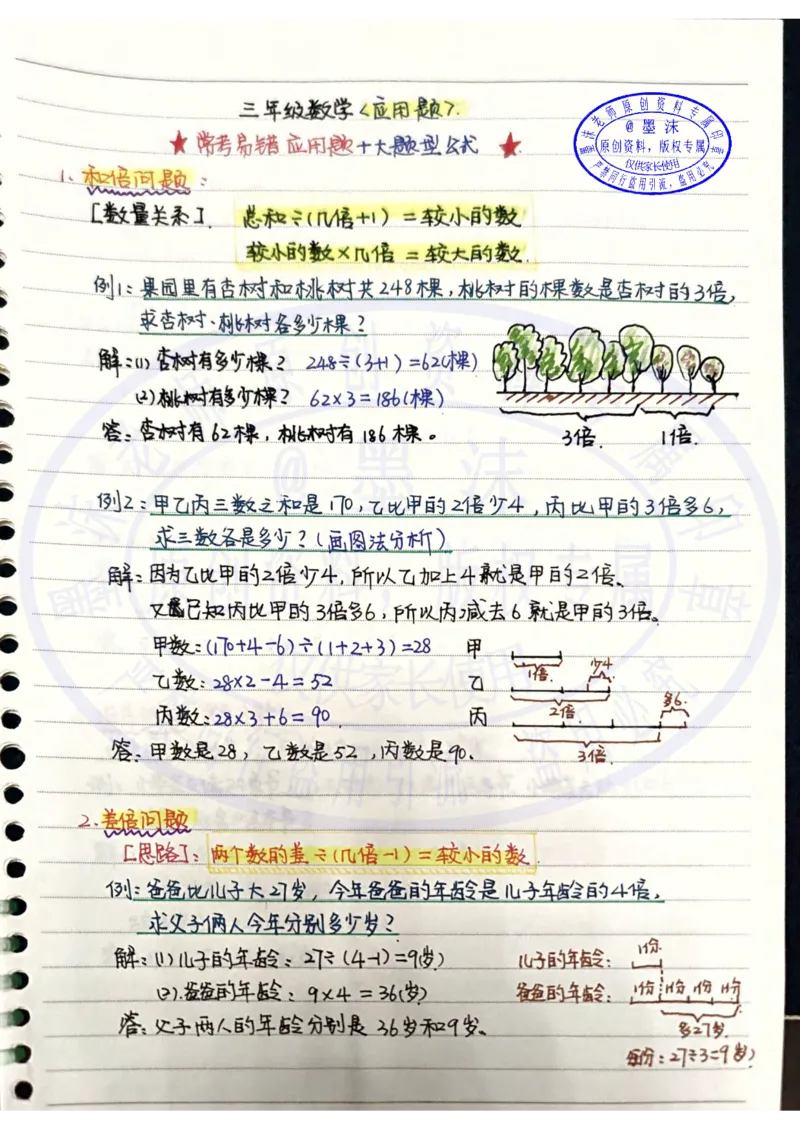 三年级数学<应用题>.
★常考易错应用题+大题型公式★
墨沫老师原创资料专属印章
@墨沫
原创资料，版权专属
仅供家长使用
严禁同行盗用引流，盗用必究
1. 和倍问题：
[数量关系]. 总和÷(几倍+1) = 较小的数
较小的数×几倍 = 较大的数.
例1: 果园里有杏树和桃树共248棵,桃树的棵数是杏树的3倍,
求杏树、桃树各多少棵?
解:(1) 杏树有多少棵? 248÷(3+1)=62(棵)
(2)桃树有多少棵? 62×3=186(棵)
答: 杏树有62棵, 桃树有186棵。
3倍. 1倍.
例2: 甲乙丙三数之和是170,乙比甲的2倍少4,丙比甲的3倍多6,
求三数各是多少?(画图法分析)
解: 因为乙比甲的2倍少4,所以乙加上4就是甲的2倍、
又已知丙比甲的3倍多6,所以丙减去6就是甲的3倍。
甲数:(170+4-6)÷(1+2+3)=28 甲
1倍. 少4
乙数: 28×2-4=52 乙
2倍. 多6.
丙数:28×3+6=90. 丙
3倍.
答: 甲数是28, 乙数是52,丙数是90.
2.差倍问题
[思路]: 两个数的差÷(几倍-1)=较小的数.
例: 爸爸比儿子大27岁, 今年爸爸的年龄是儿子年龄的4倍,
求父子俩人今年分别多少岁?
解: (1)儿子的年龄: 27÷(4-1)=9(岁) 儿子的年龄: 1份.
(2).爸爸的年龄: 9×4=36(岁) 爸爸的年龄: 1份 1份 1份 1份
答: 父子两人的年龄分别是36岁和9岁。 多27岁.
每份: 27÷3=9(岁)